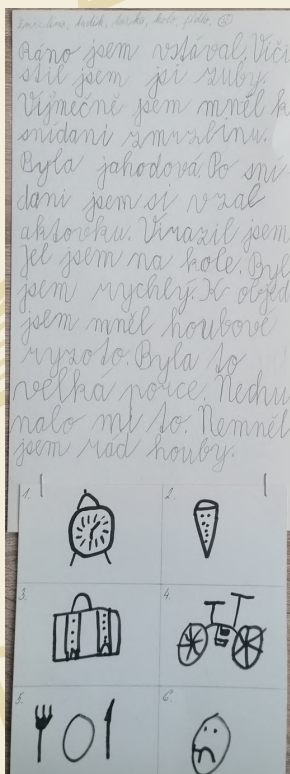 zmrzlina, budík, taška, kolo, jídlo,
Ráno jsem vstával. Viči
stil jsem jsi zuby.
Vijmečně jsem mněl k
snídani zmrzlinu.
Byla jahodová. Po sní
dani jsem si vzal
aktovku. Virazil jsem
Jel jsem na kole. Byl
jsem rychlý. K oběd
jsem mněl houbové
ryzoto. Byla to
velká porce. Nechu
nalo mi to. Nemněl
jsem rád houby.
1. 2.
3. 4.
5. 6.